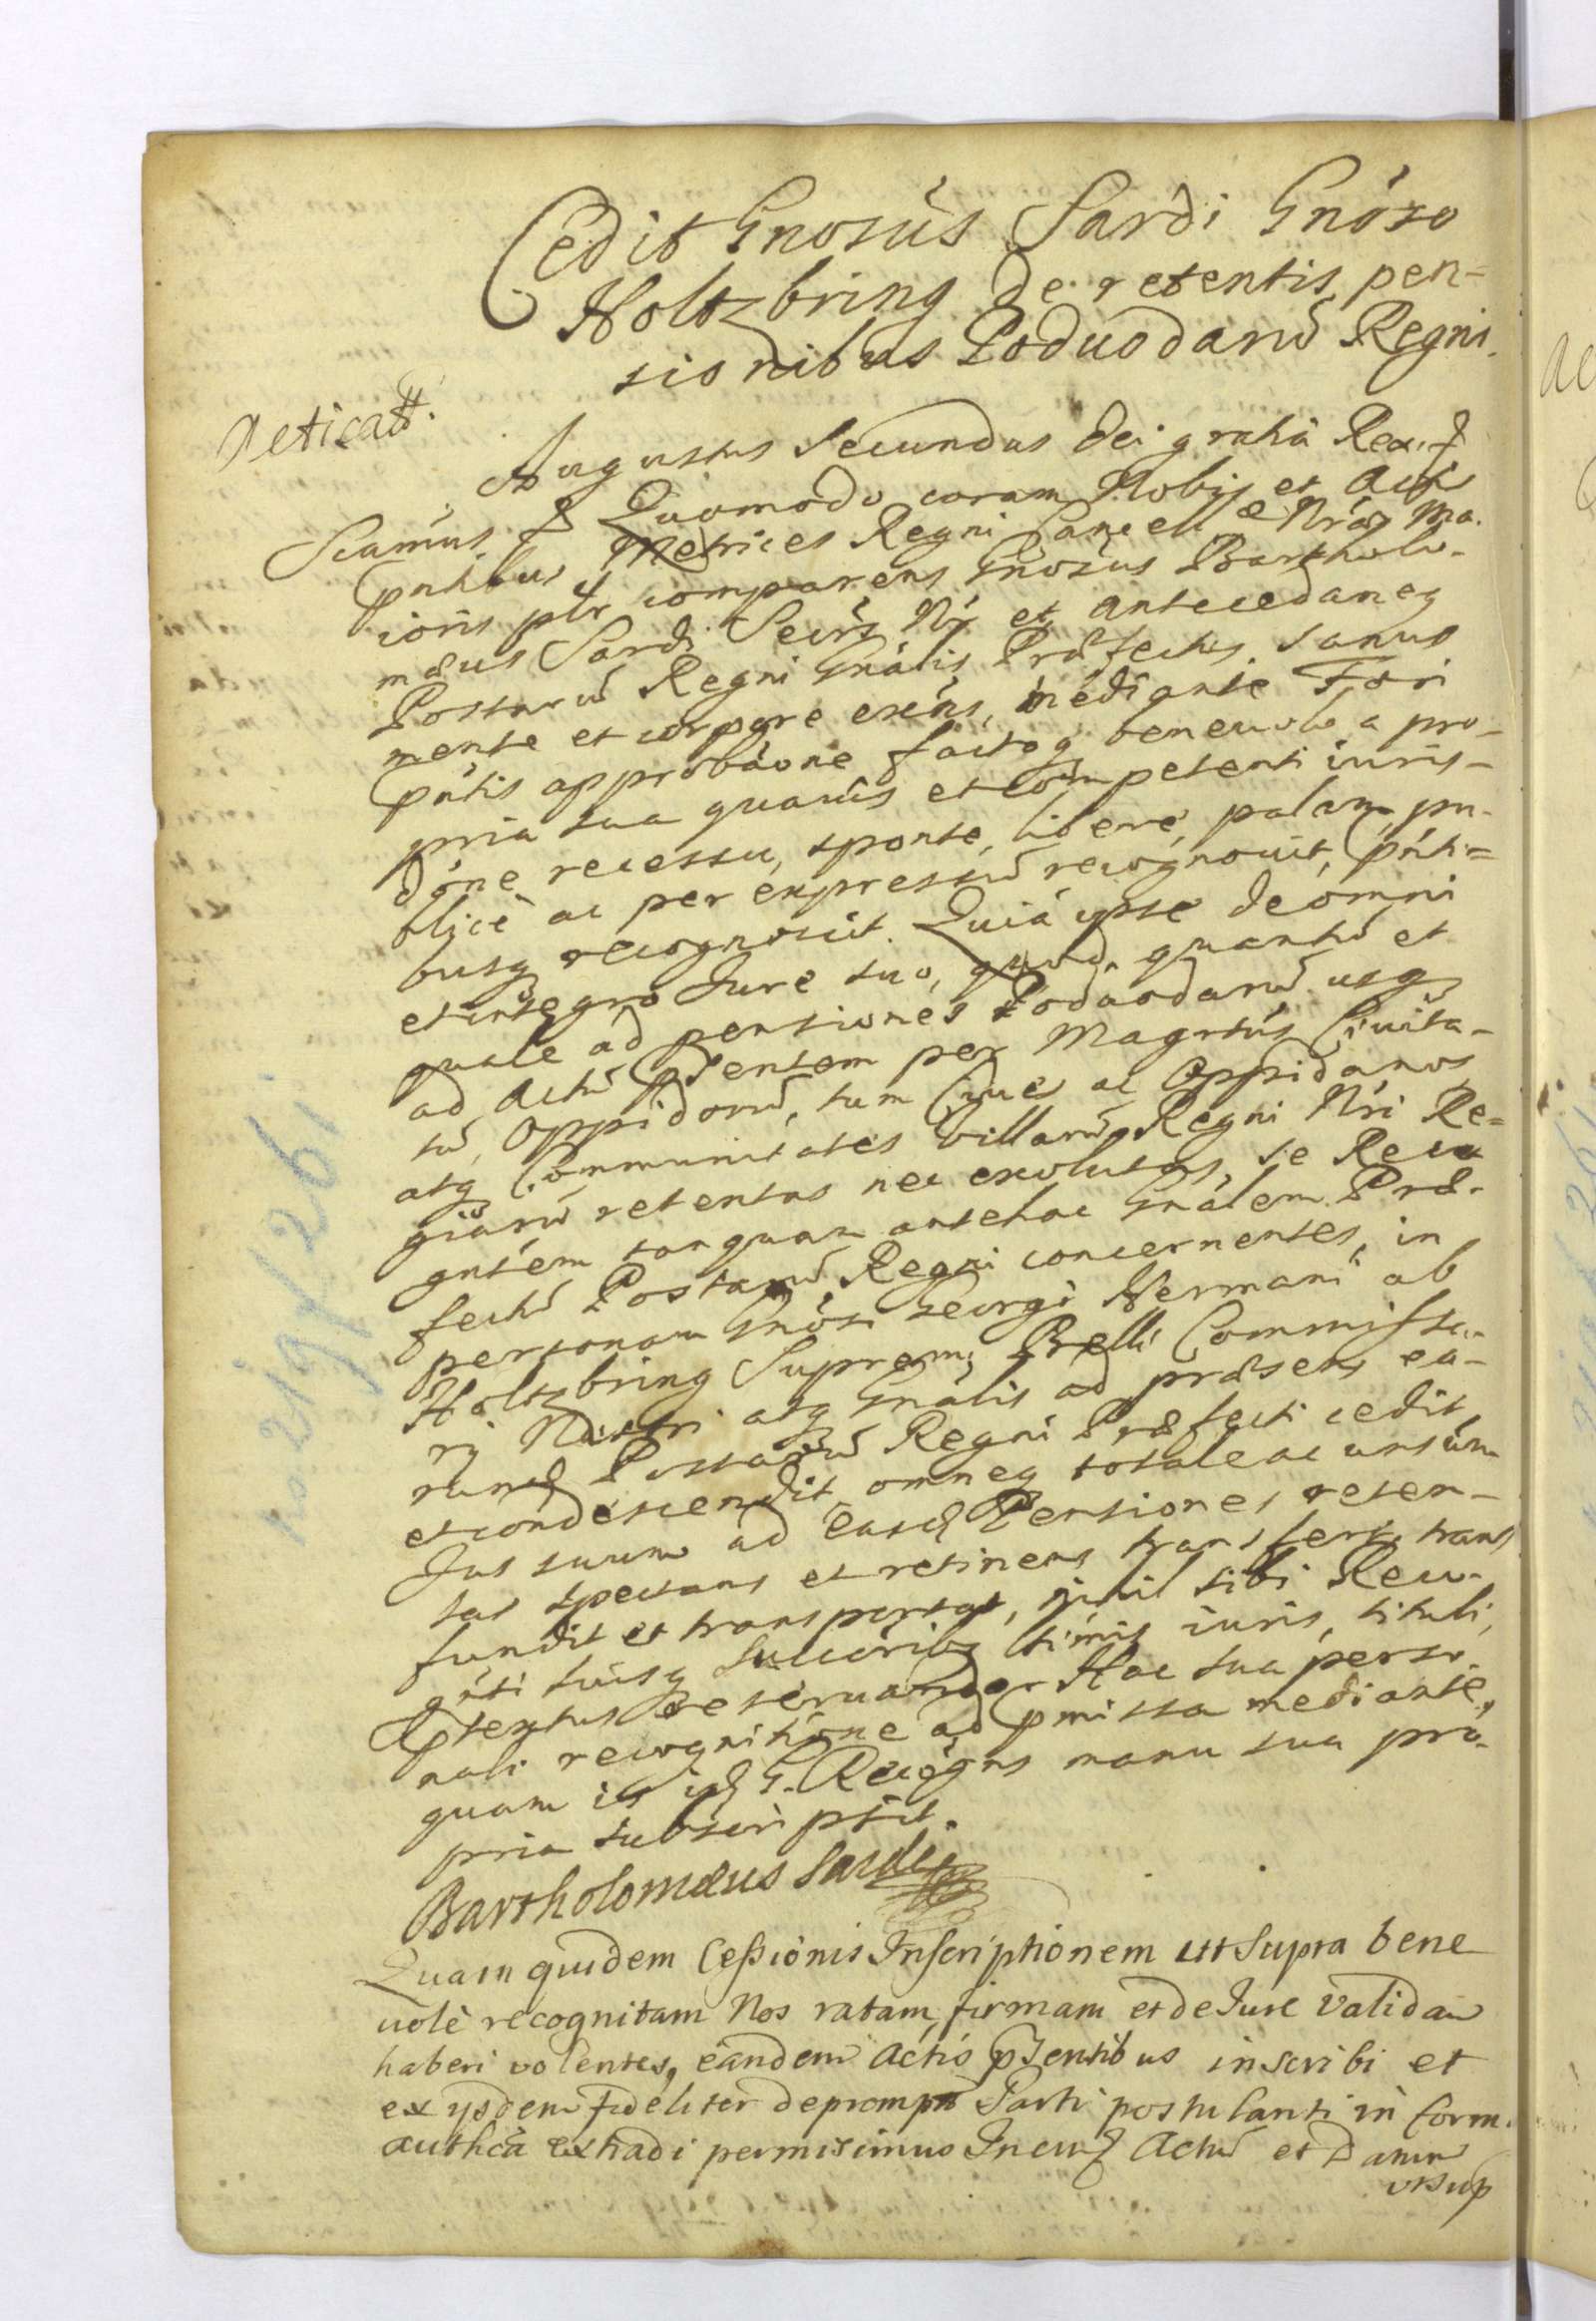 Cedit Gnosus Sardi Gnoso
Holtzbring de retentis pen-
sionibus Poduodarū Regni.
Acticatt.
Augustus Secundus Dei gratia Rex. f
Scamus f Quomodo coram Nobis et Actis
pntibus Metrices Regni Cancellae Nrae Ma-
ioris plr comparens Gnosus Bartholo-
maeus Sardi Secrs Nr et antecedaneq
Postarū Regni Gnalis Praefectus, sanus
mente et corpore exens, mediante Fori
pntis approbaone factoq benevole a pro-
pria sua quavis et competenti iuris-
done recessu, sponte, libere, palam, pu-
blice ac per expressū recognovit, pnti-
busq recognoscit. Quia ipse de omni
et integro Jure suo, quod, quantū et
quale ad pensiones Poduodarū usq
ad Actū psentem per Magrtus Civita-
tū, Oppidorū, tum Cives ac Oppidanos
atq Communitates Villarū Regni Nri Re-
giarū retentas nec exolutas, se Reco-
gntem tanquam antehac Gnalem Prae-
fectū Postarū Regni concernentes, in
personam Gnosi Georgi Hermani ab
Holtzbring Supremi Belli Commissa-
rij Nostri atq Gnalis ad praesens ea-
rund Postarū Regni Praefecti cedit
et condescendit, omneq totale ac unsum
Jus suum ad easd Pensiones reten-
tas spectans et retinens transfert, trans
fundit et transportat, nihil sibi Reco-
gnti suisq Succoribq simis iuris, tituli,
ptextus reservando. Hac sua perso-
nali recognitione ad pmissa mediante,
quam is id G. Recogns manu sua pro-
pria subscripsit.
Bartholomaeus Sardi
Quam quidem Cessionis Inscriptionem ut supra bene
volè recognitam Nos ratam, firmam et de Jure validam
haberi volentes, eandem Actis psentibus inscribi et
ex ijsdem fideliter depromptā Parti postulanti in Form.
authca extradi permisimus In cuiq Actū et Datum
ut sup